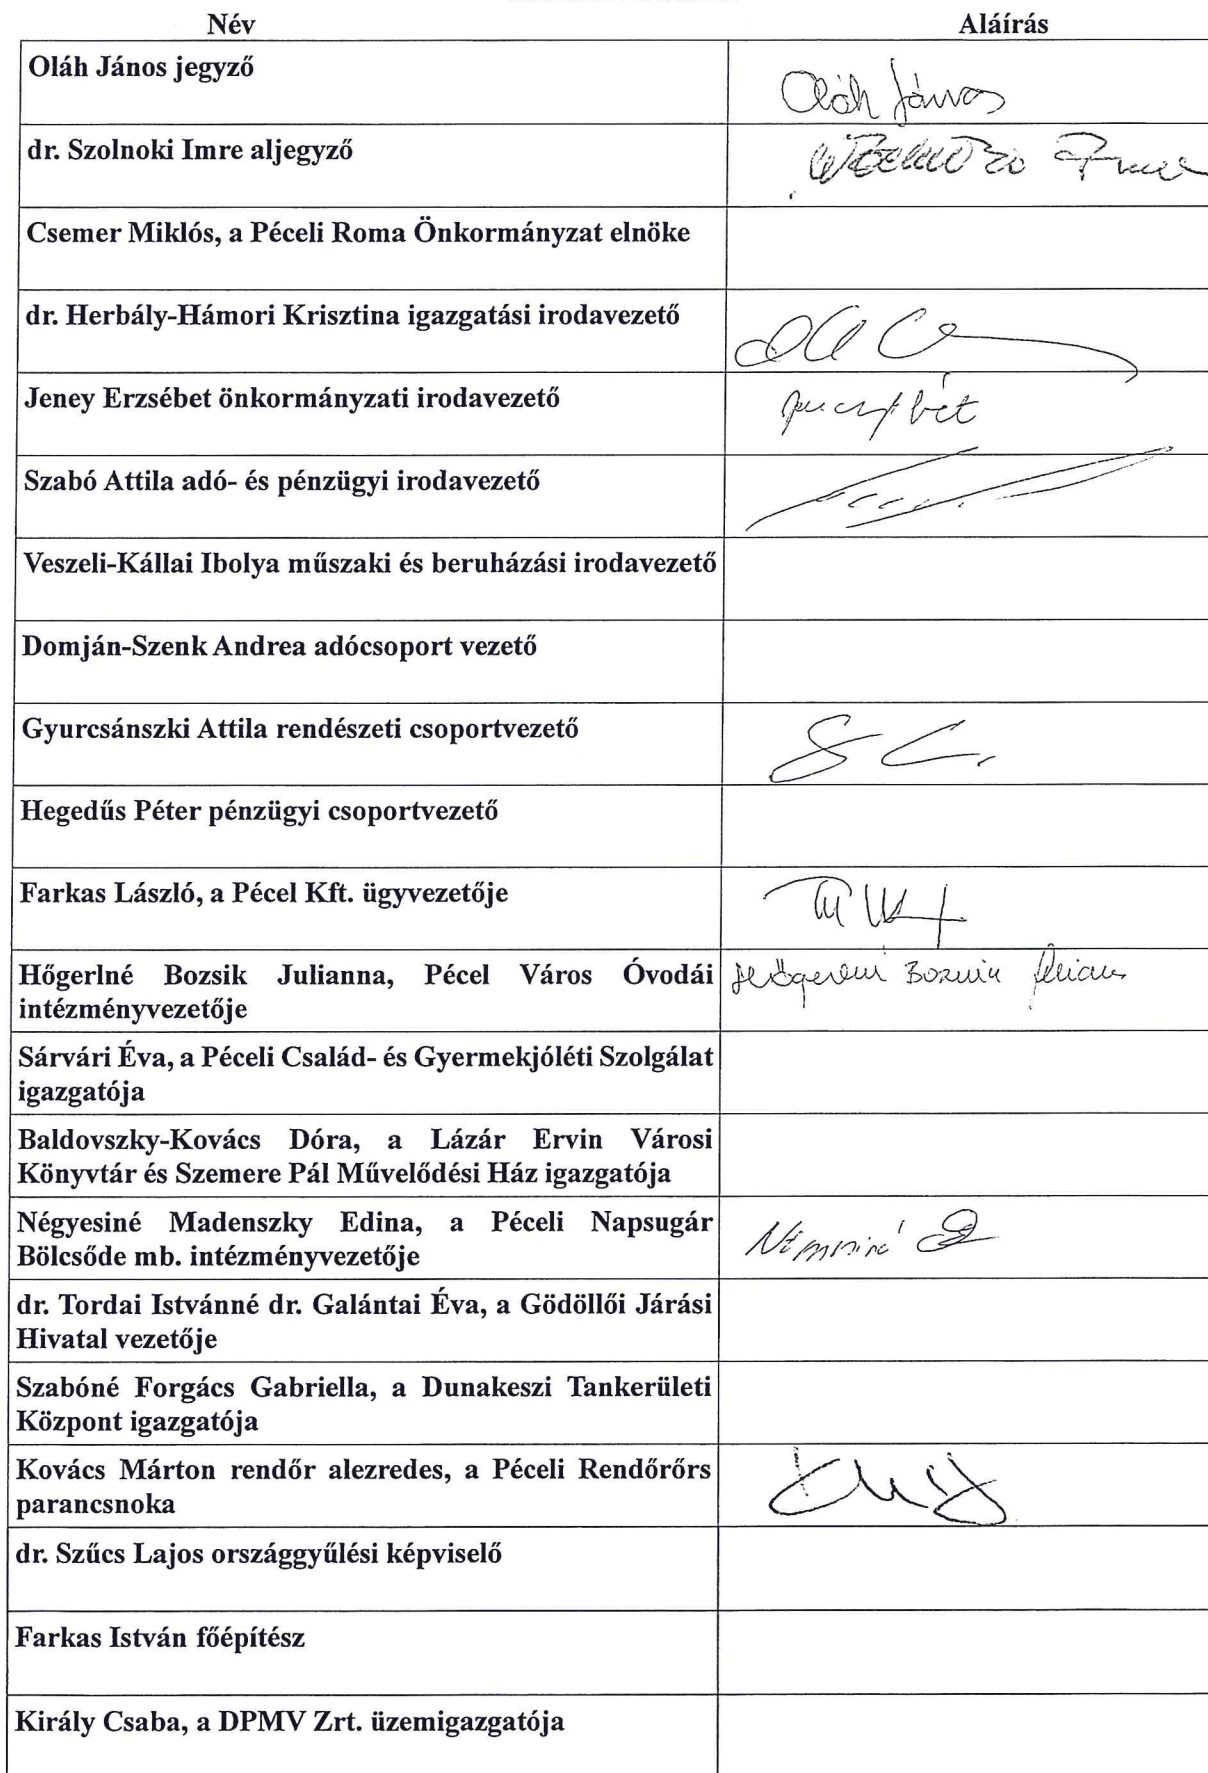 Név Aláírás
Oláh János jegyző
Oláh János
dr. Szolnoki Imre aljegyző
Imre
Csemer Miklós, a Péceli Roma Önkormányzat elnöke
dr. Herbály-Hámori Krisztina igazgatási irodavezető
Jeney Erzsébet önkormányzati irodavezető
Szabó Attila adó- és pénzügyi irodavezető
Veszeli-Kállai Ibolya műszaki és beruházási irodavezető
Domján-Szenk Andrea adócsoport vezető
Gyurcsánszki Attila rendészeti csoportvezető
Hegedűs Péter pénzügyi csoportvezető
Farkas László, a Pécel Kft. ügyvezetője
Hőgerlné Bozsik Julianna, Pécel Város Óvodái
intézményvezetője
Sárvári Éva, a Péceli Család- és Gyermekjóléti Szolgálat
igazgatója
Baldovszky-Kovács Dóra, a Lázár Ervin Városi
Könyvtár és Szemere Pál Művelődési Ház igazgatója
Négyesiné Madenszky Edina, a Péceli Napsugár
Bölcsőde mb. intézményvezetője
dr. Tordai Istvánné dr. Galántai Éva, a Gödöllői Járási
Hivatal vezetője
Szabóné Forgács Gabriella, a Dunakeszi Tankerületi
Központ igazgatója
Kovács Márton rendőr alezredes, a Péceli Rendőrőrs
parancsnoka
dr. Szűcs Lajos országgyűlési képviselő
Farkas István főépítész
Király Csaba, a DPMV Zrt. üzemigazgatója